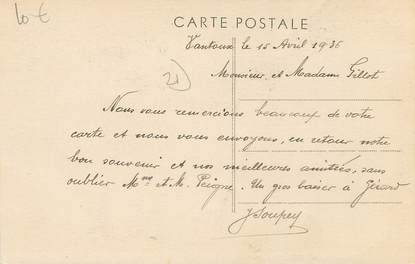 10 €
CARTE POSTALE
Vantoux le 15 Avril 1936
21
Monsieur et Madame Gillot
Nous vous remercions beaucoup de votre
carte et nous vous envoyons, en retour notre
bon souvenir et nos meilleures amitiés, sans
oublier Mme et M. Peigne. Un gros baiser à Gérard
JSoupey